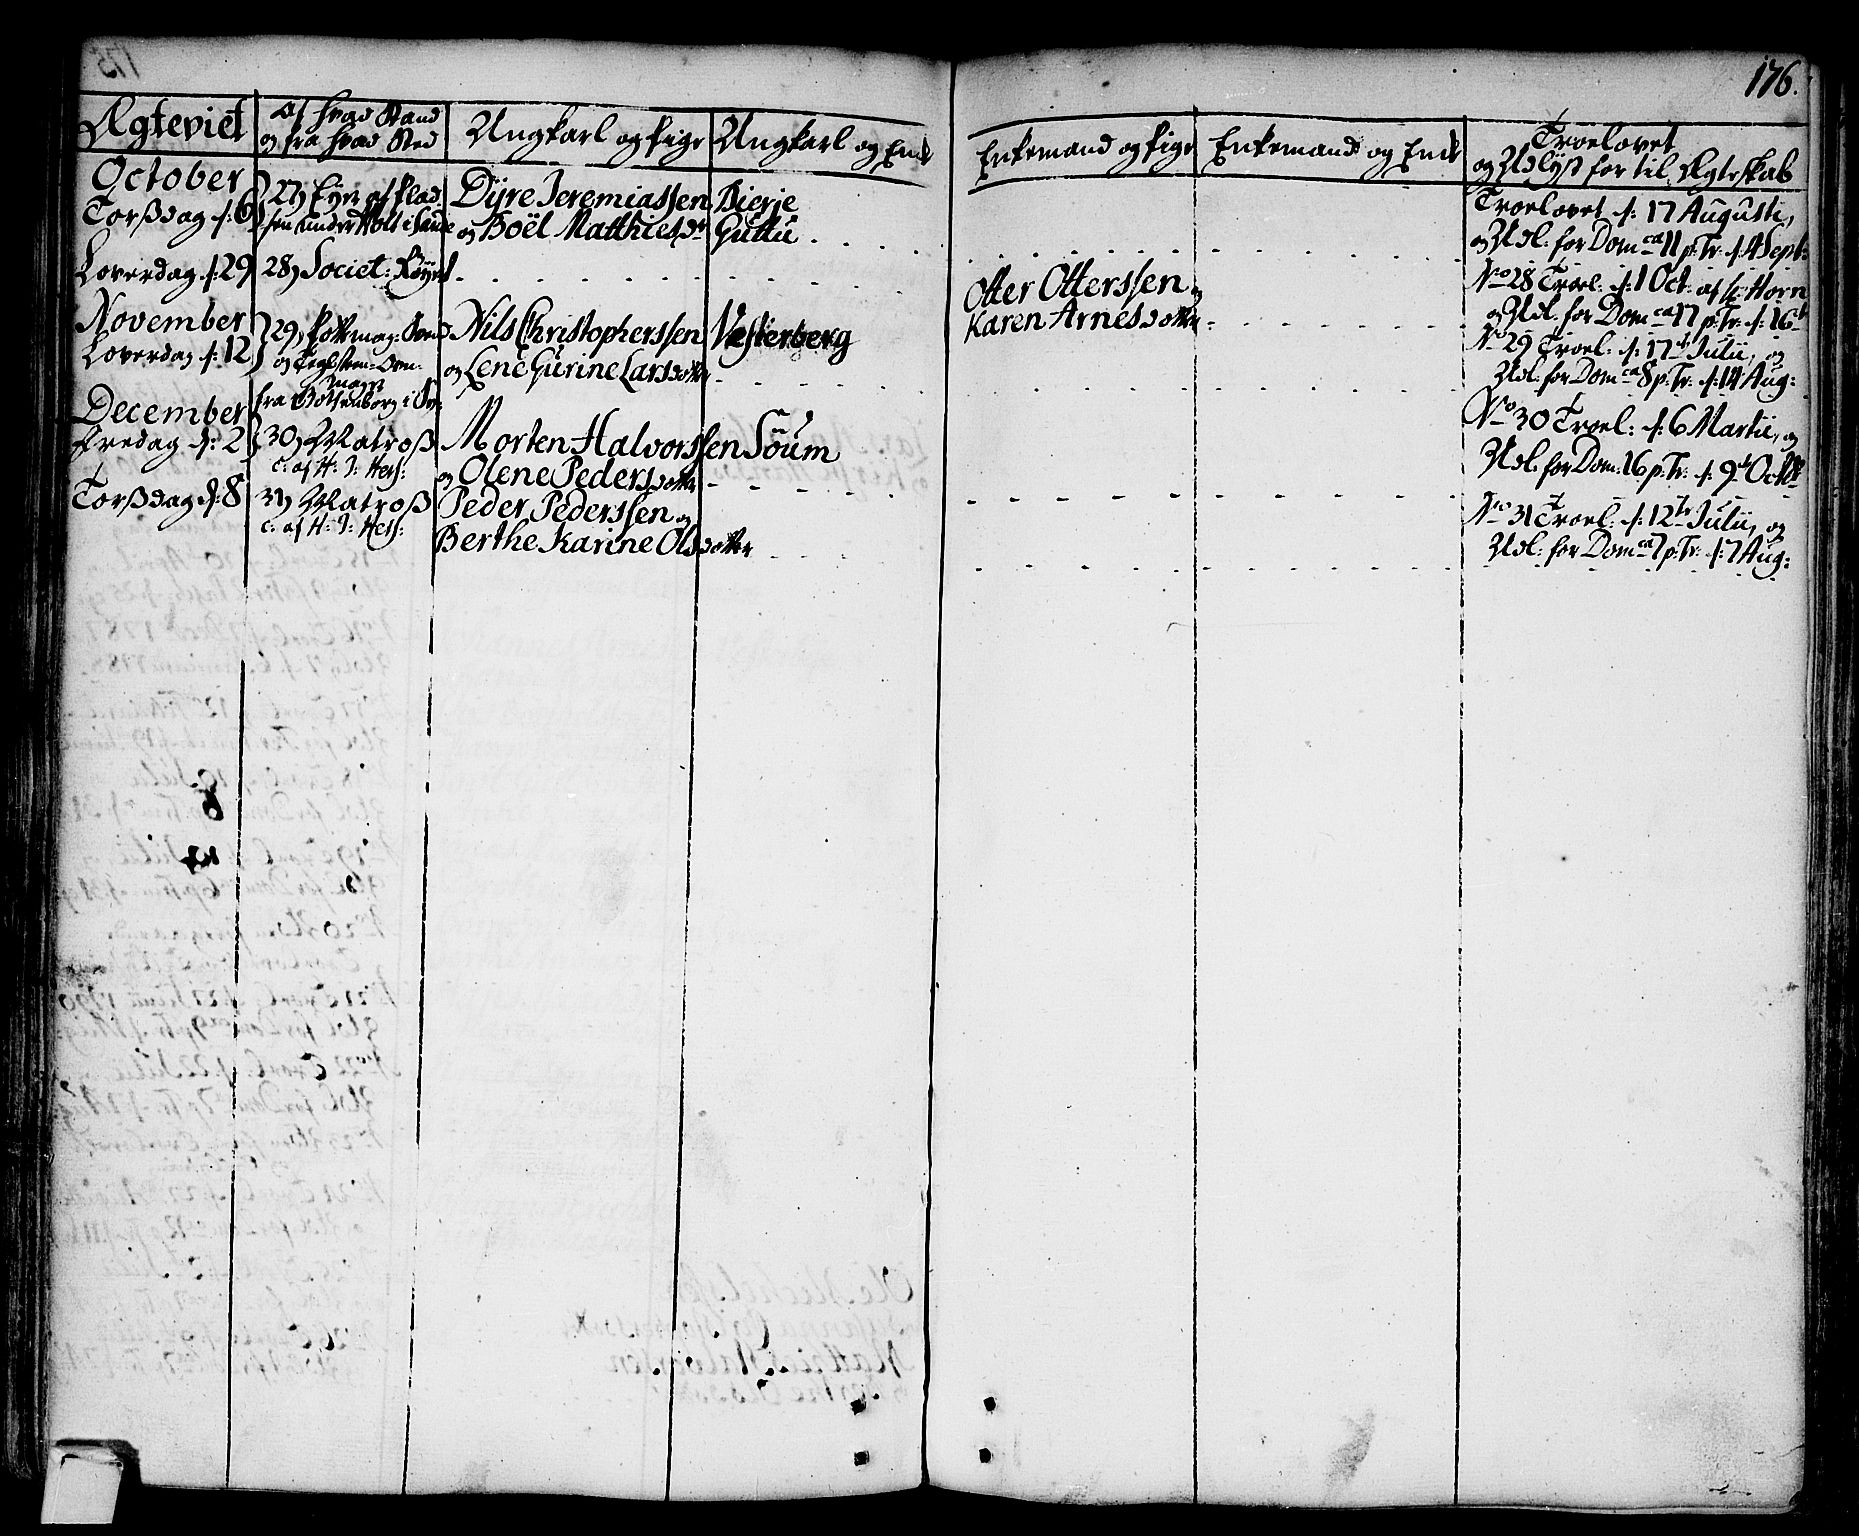 176.
Ægteviet
Af hvad Stand
og fra hvad Sted
Ungkarl og Pige
Ungkarl og Enke
Enkemand og Pige
Enkemand og Enke
Troelovet
og Udlyst for til Ægteskab
October
Torsdag d: 6
27, af Plad
sen under Holt i Sande
Dijre Jeremiassen Bierje
og Boël Matthiesdr Guttu
Troelovet d: 17 Augusti,
og Udl: for Dom ca 11 p: Tr: d: 4 Sept:
Loverdag d: 29
28, Societ:
Otter Otterssen og
Karen Arnesdotter
No 28 Troel: d: 1 Oct: af Hr Horn
og Udl: for Dom ca 17 p: Tr: d: 16
November
Loverdag d: 12
29, Pottmag: Svend
og
fra i
Nils Christopherssen Vesterberg
og Lene Gurine Larsdotter
No 29 Troel: d: 17 Julii, og
Udl: for Dom ca 8 p: Tr: d: 14 Aug:
December
Fredag d: 2
30, Matros
c: af H: J: Hess:
Morten Halvorssen Söum
og Olene Pedersdotter
No 30 Troel: d: 6 Martii, og
Udl: for Dom: 16 p: Tr: d: 9 Octbr
Torsdag d: 8
31, Matros
c: af H: J: Hess:
Peder Pederssen og
Berthe Karine Olsdotter
No 31 Troel: d: 12 Julii, og
Udl: for Dom ca 7 p: Tr: d: 7 Aug: